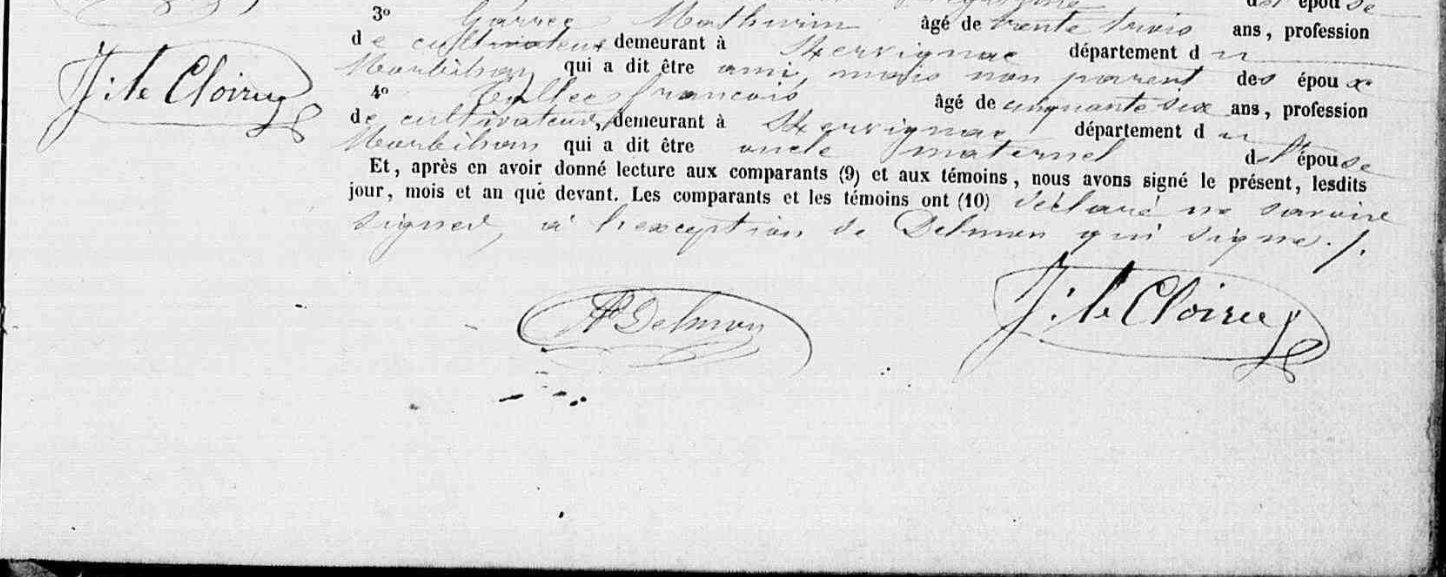 de l'épouse
3º Garrec Mathurin âgé de trente trois ans, profession
de cultivateur demeurant à Kervignac département du
Morbihan qui a dit être ami, mais non parent des époux
4º François âgé de cinquante six ans, profession
de cultivateur, demeurant à Kervignac département du
Morbihan qui a dit être oncle maternel de l'épouse
Et, après en avoir donné lecture aux comparants (9) et aux témoins, nous avons signé le présent, lesdits
jour, mois et an que devant. Les comparants et les témoins ont (10) déclaré ne savoir
signer, à l'exception de Delmon qui signe./.
J: le Cloirec
Delmon
J: le Cloirec